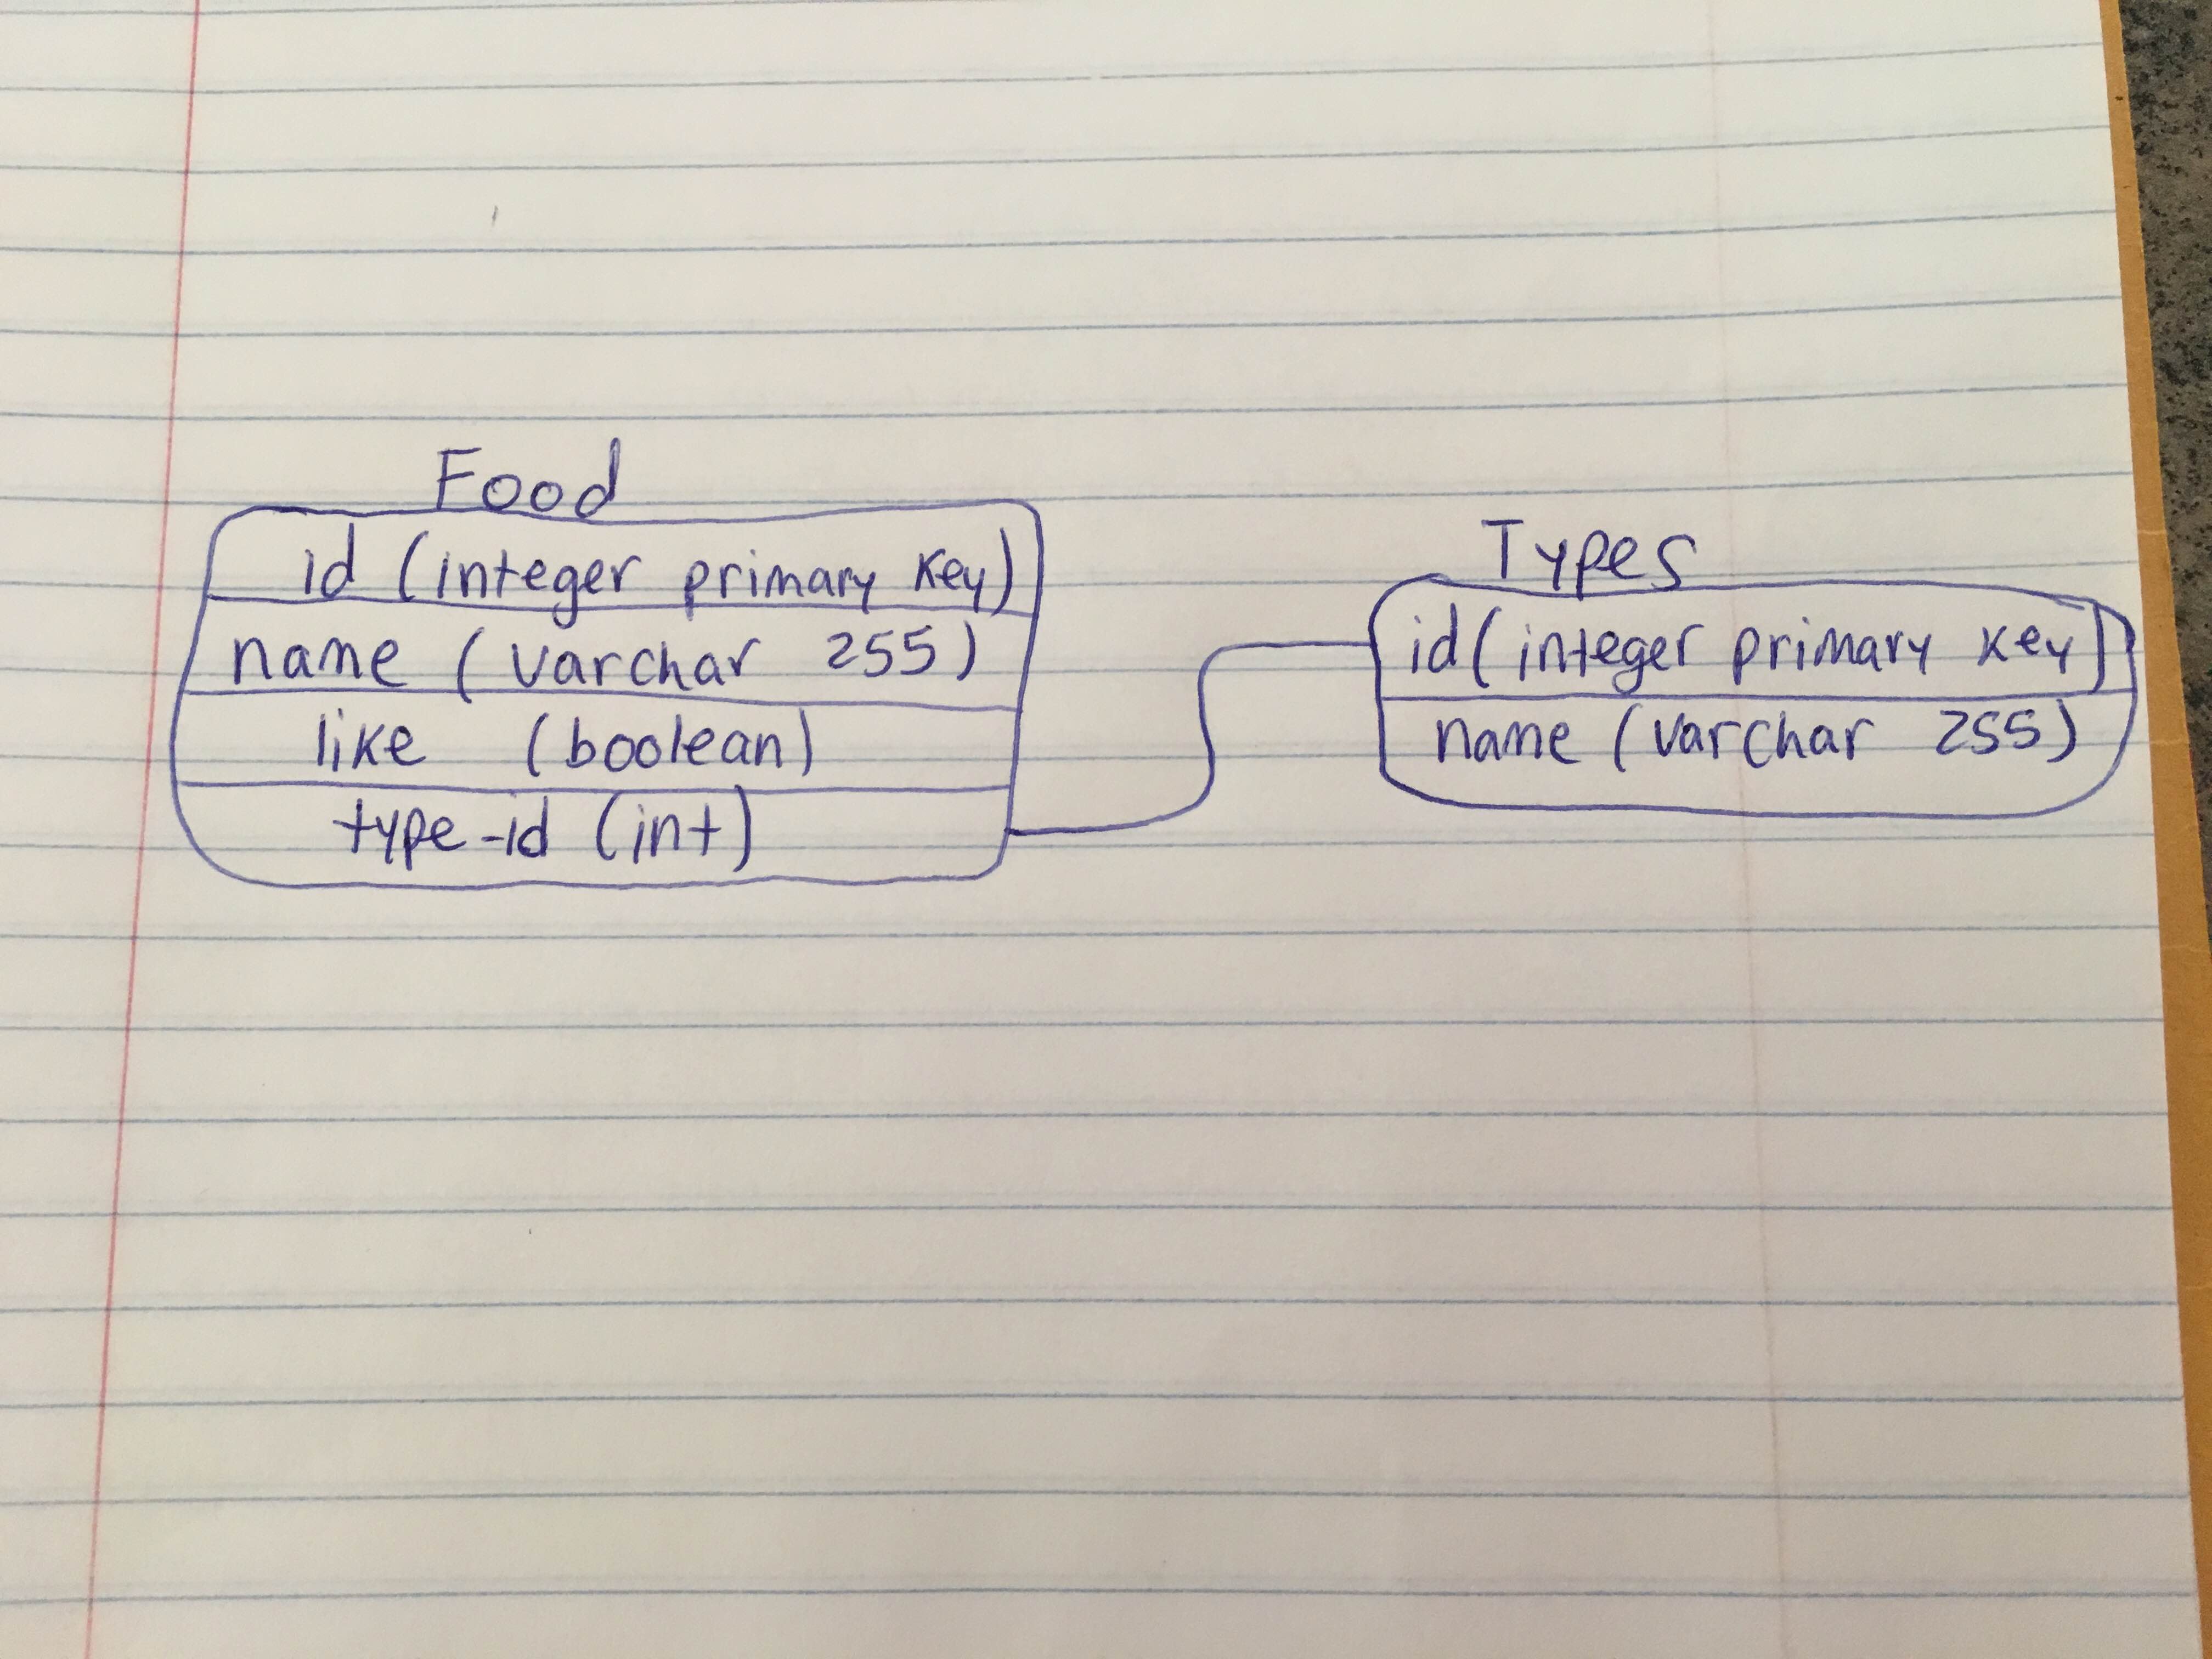 Food
id (integer primary key)
name (varchar 255)
like (boolean)
type-id (int)
Types
id (integer primary key)
name (varchar 255)